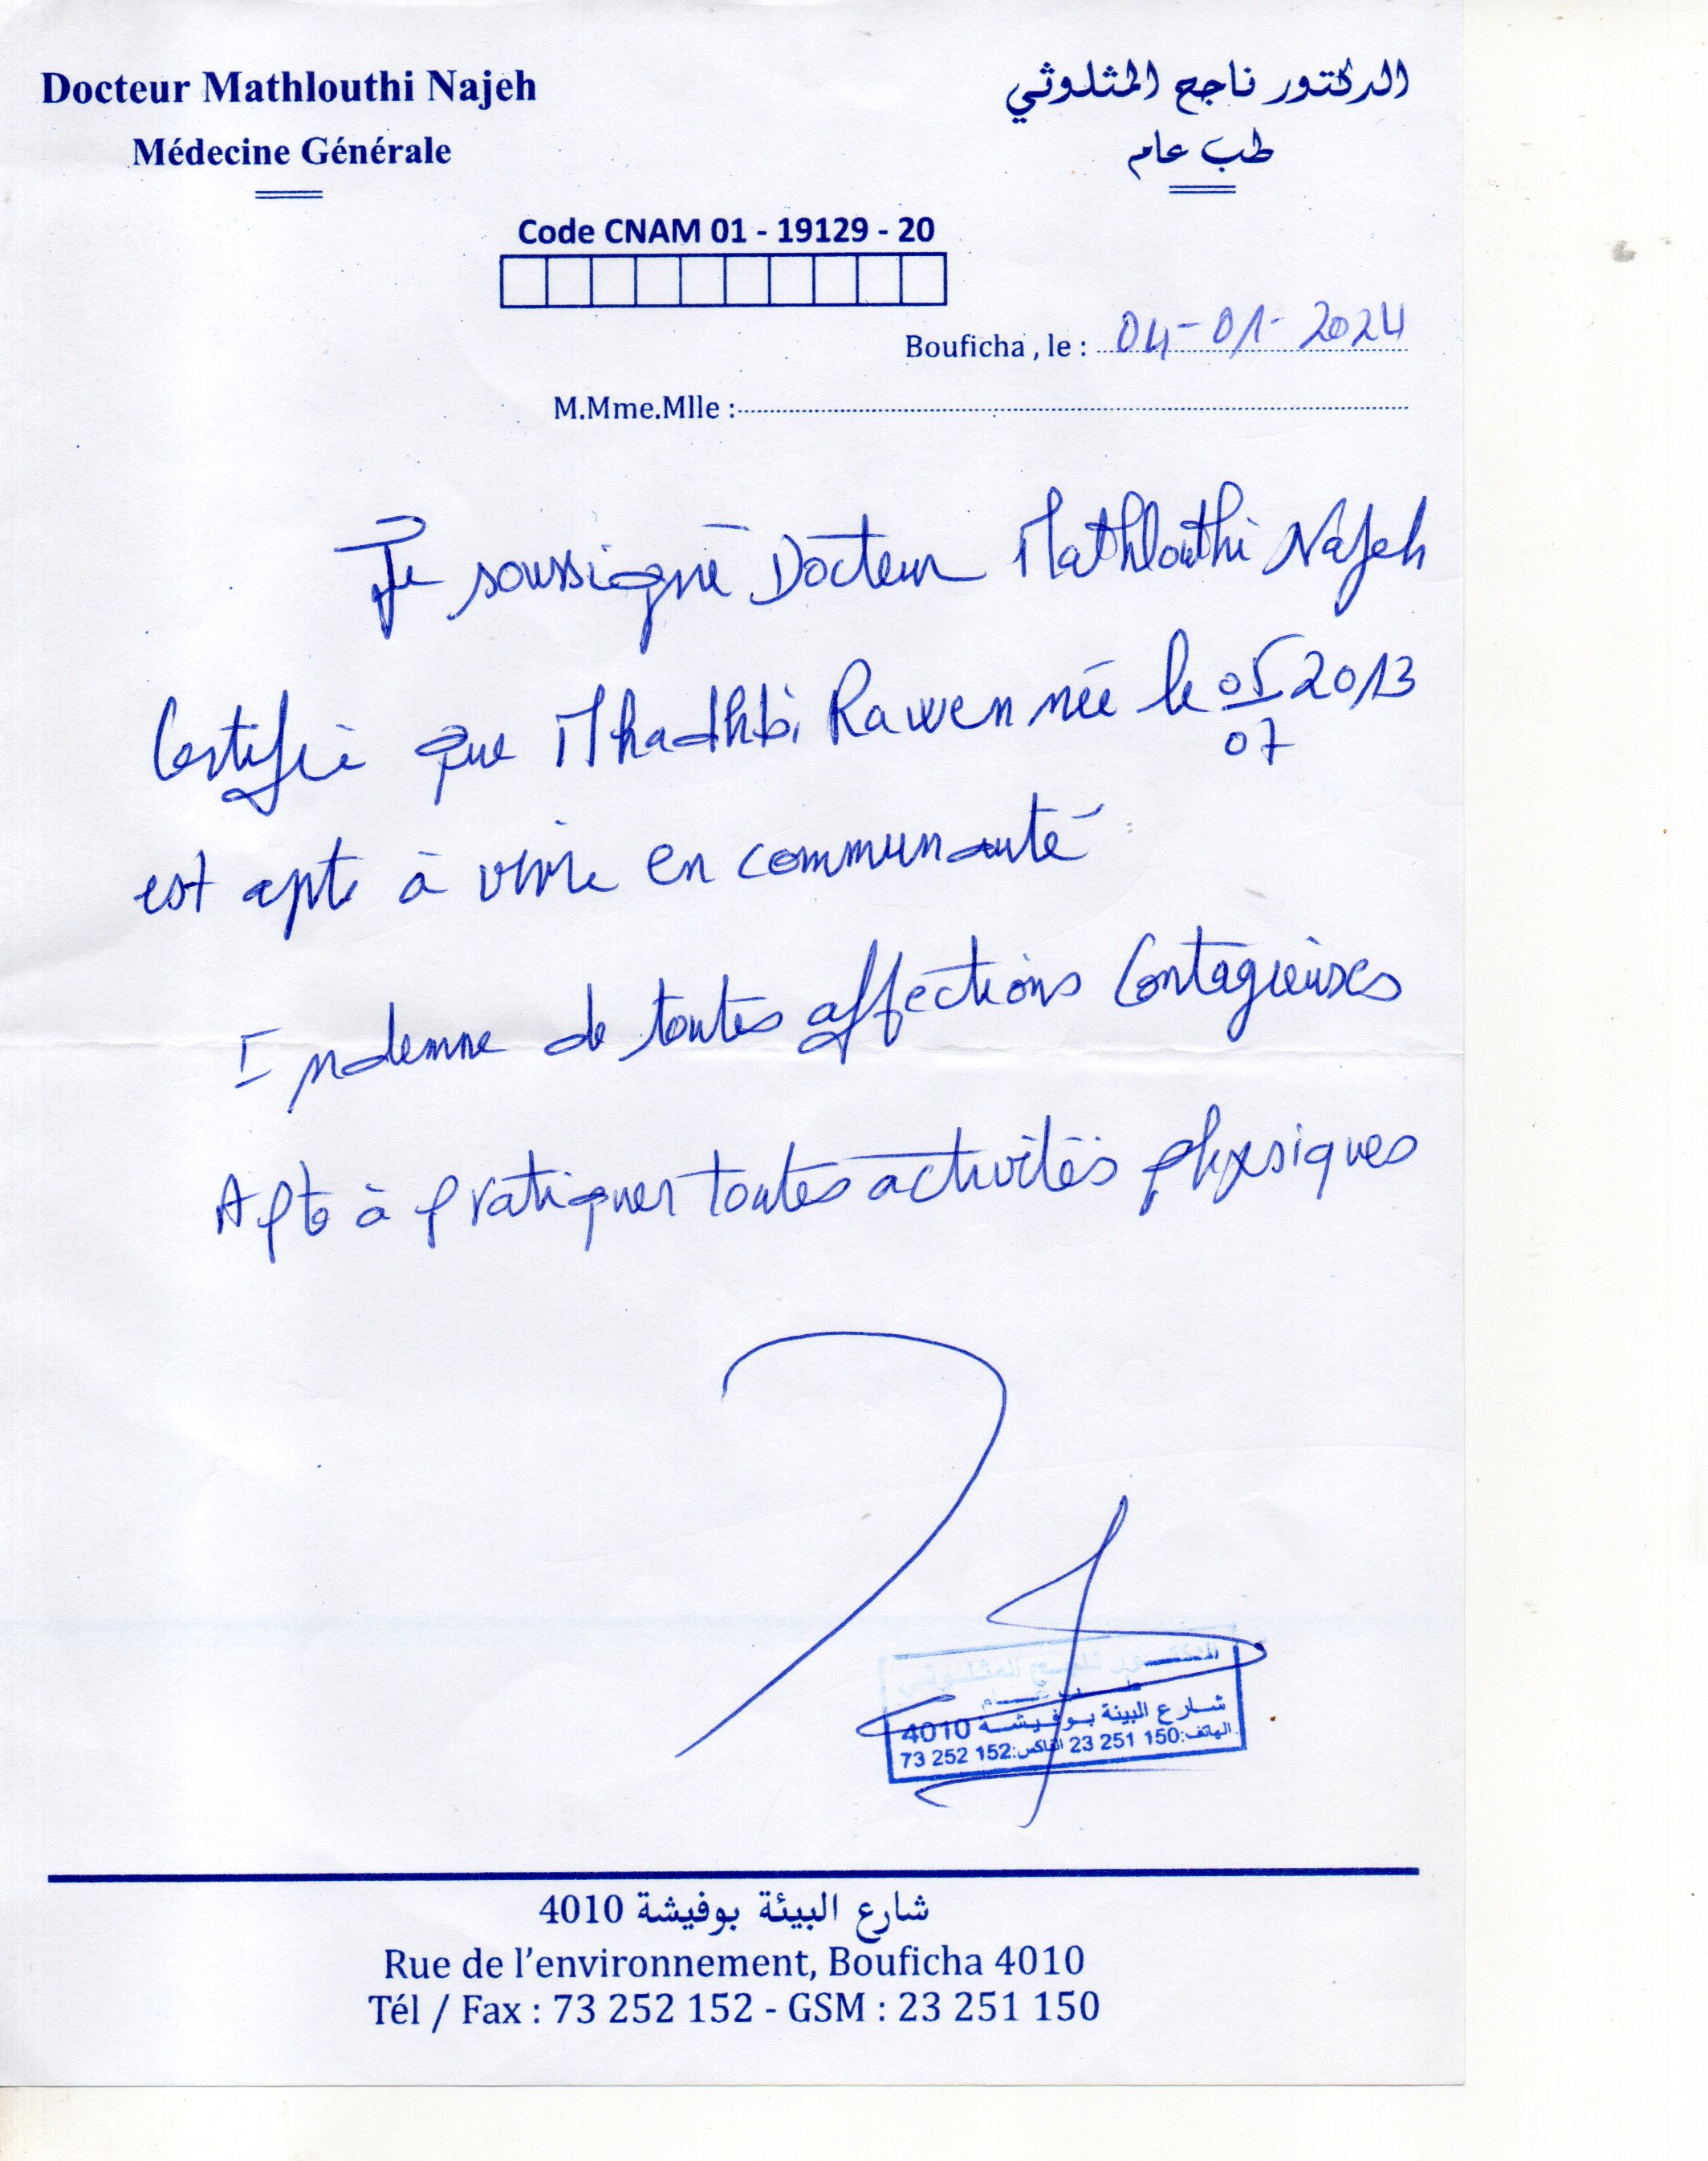 Docteur Mathlouthi Najeh
الدكتور ناجح المثلوثي
Médecine Générale
طب عام
Code CNAM 01 - 19129 - 20
Bouficha , le : 04-01-2024
M.Mme.Mlle :
Je soussigné Docteur Mathlouthi Najeh
Certifie que Mhadhbi Rawen née le 05 2013
07
est apte à vivre en communauté
Indemne de toutes affections Contagieuses
Apte à pratiquer toutes activités physiques
الدكتور ناجح المثلوثي
طب عام
شارع البيئة بوفيشة 4010
الهاتف:150 251 23 الفاكس:152 252 73
شارع البيئة بوفيشة 4010
Rue de l'environnement, Bouficha 4010
Tél / Fax : 73 252 152 - GSM : 23 251 150